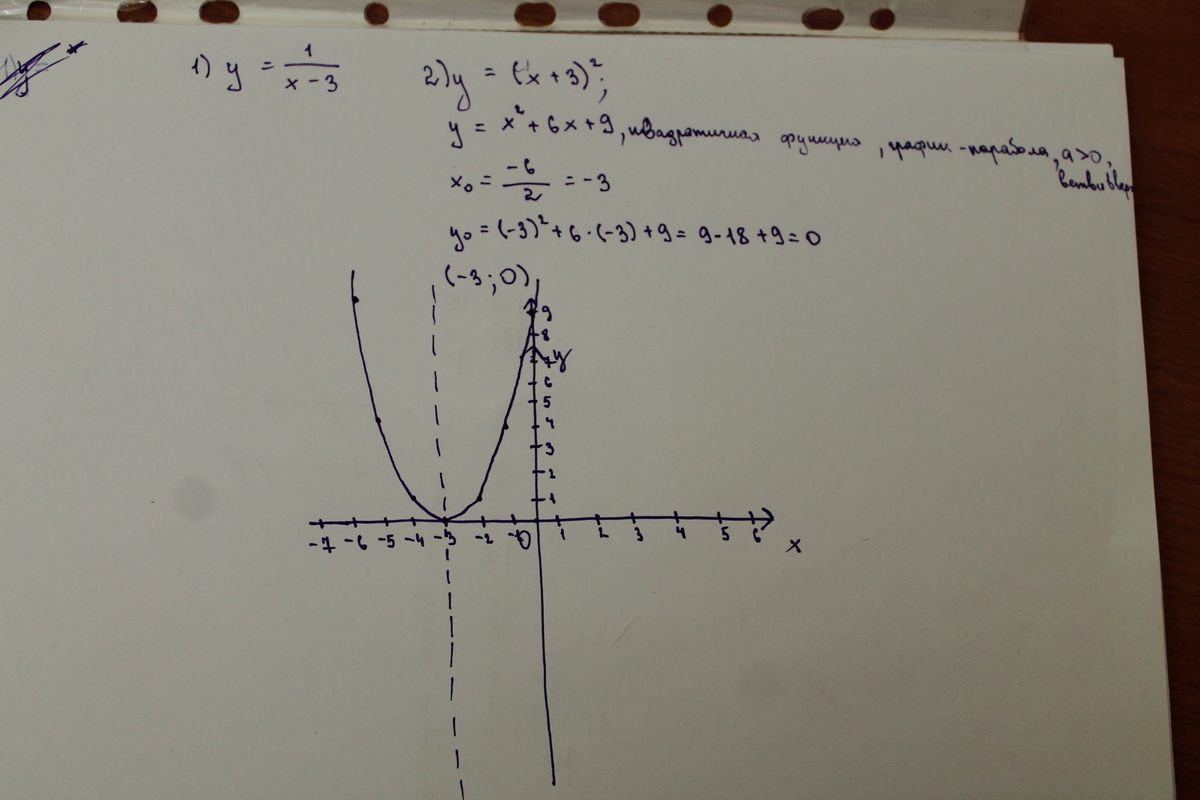 1) y = 1/(x-3)
2) y = (x+3)²;
y = x² + 6x + 9, квадратичная функция, график - парабола, a>0,
ветви вверх
x₀ = -6/2 = -3
y₀ = (-3)² + 6·(-3) + 9 = 9-18+9 = 0
(-3; 0)
9
8
7 y
6
5
4
3
2
1
-7 -6 -5 -4 -3 -2 -1 0 1 2 3 4 5 6 x